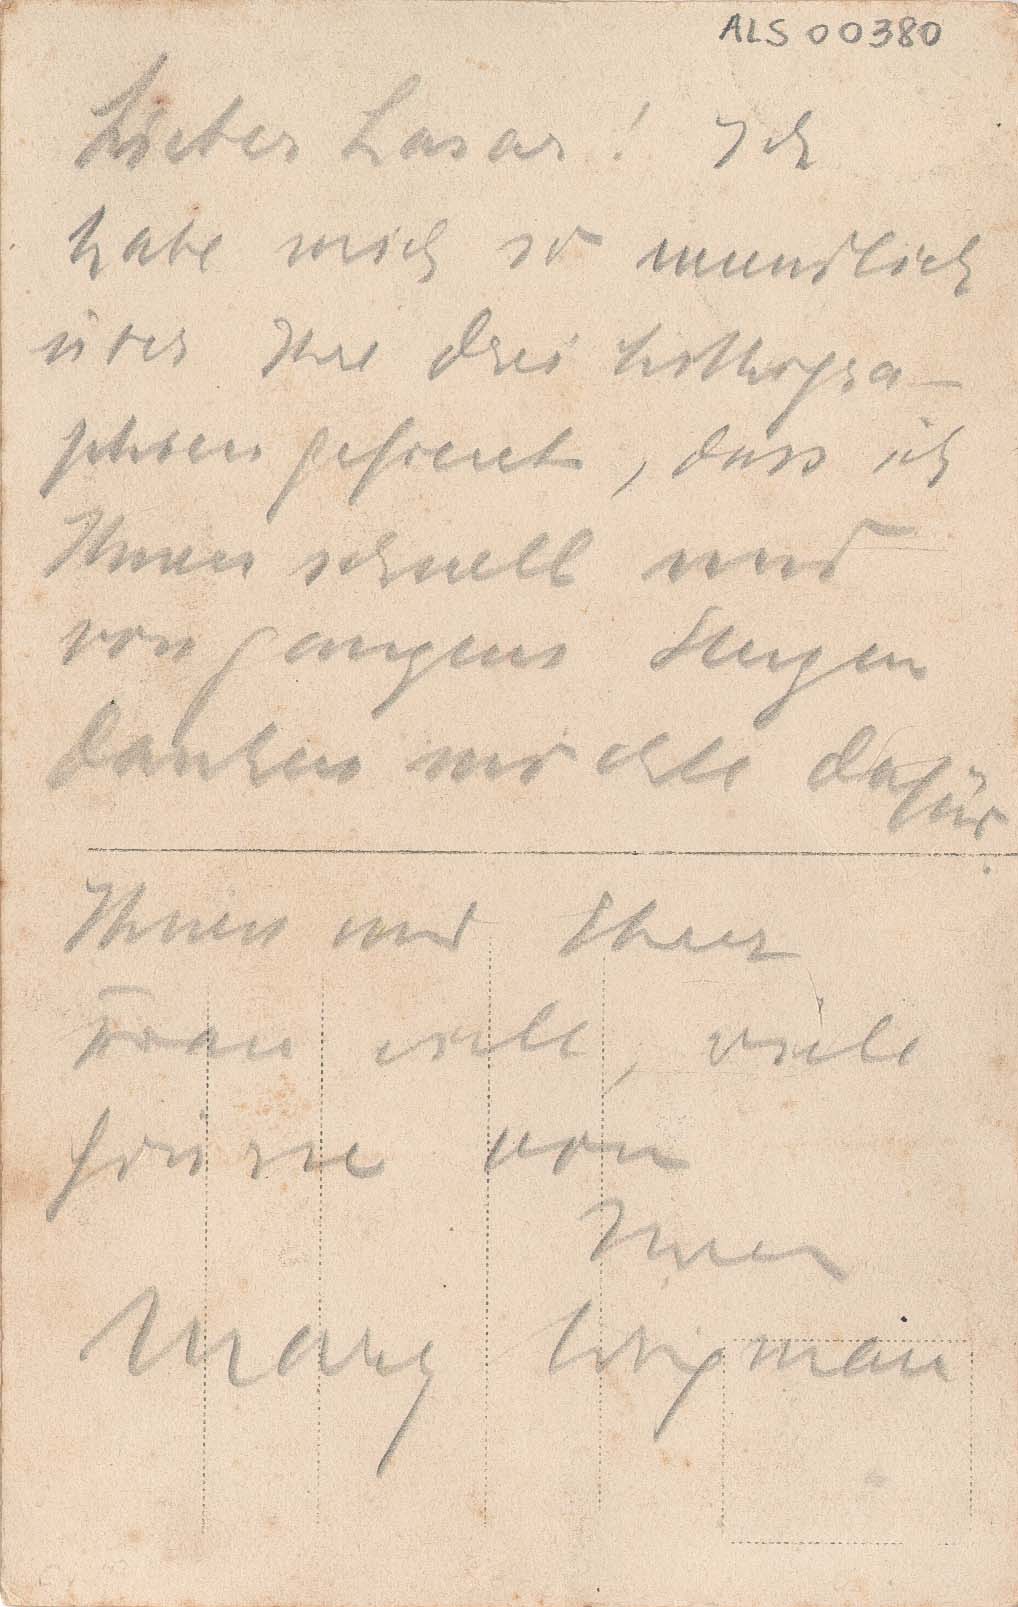 ALS 00380
Lieber Lasar! Ich
habe mich so unendlich
über Ihre drei Lithogra-
phien gefreut, dass ich
Ihnen schnell und
von ganzem Herzen
danken möchte dafür.
Ihnen und Ihrer
Frau viele, viele
Grüsse von
Ihrer
Mary Wigman